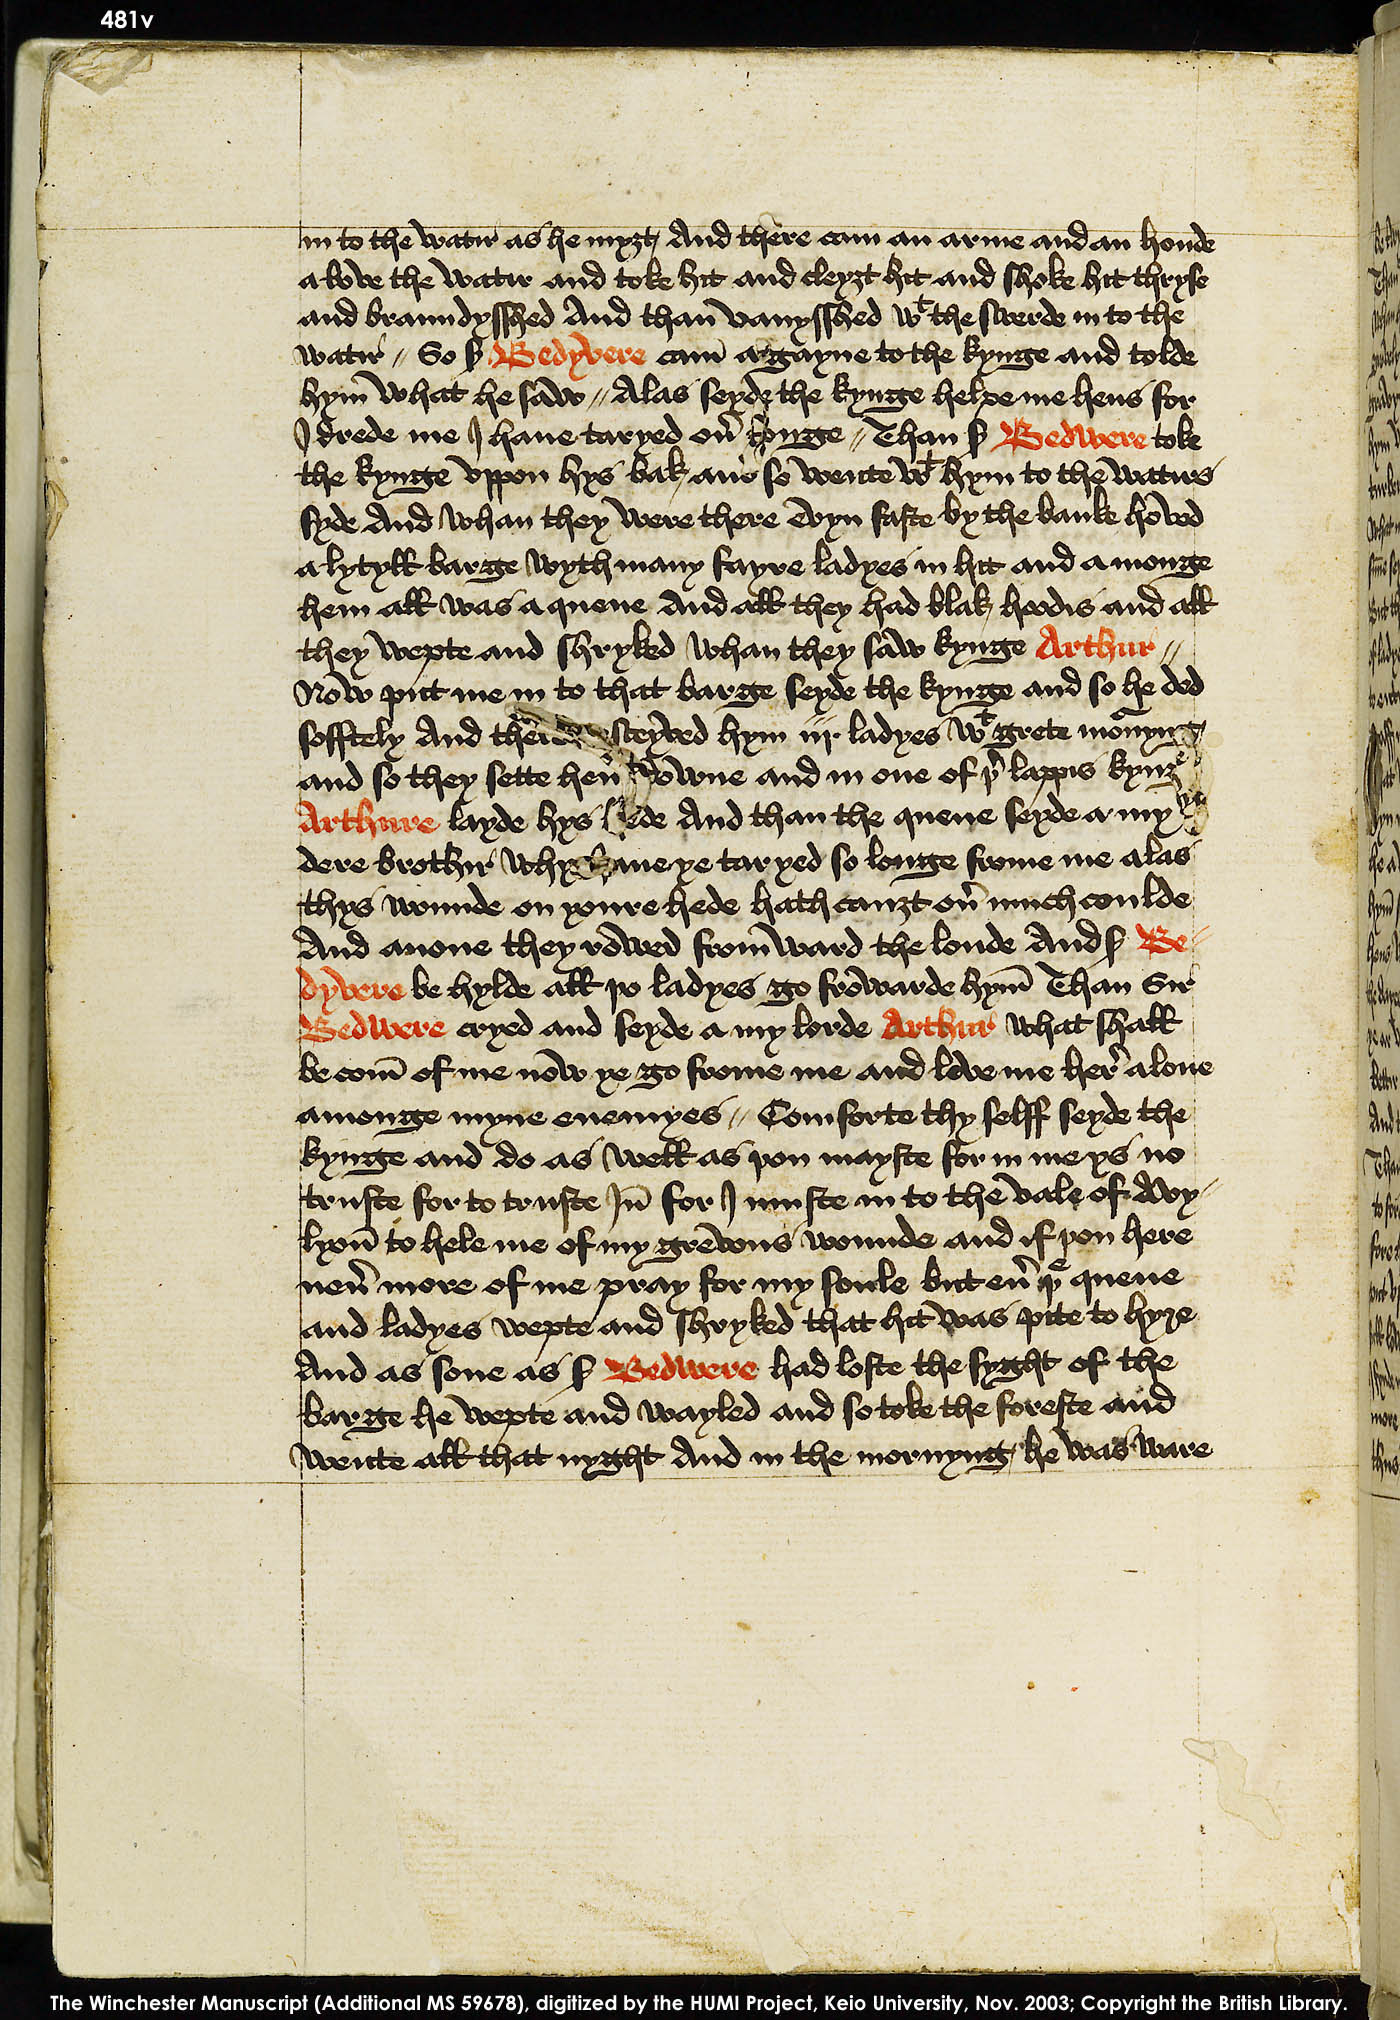 481v
in to the watir as he myȝt And there cam an arme and an honde
above the watir and toke hit and cleyȝt hit and shoke hit thryse
and braundysshed And than̄ vanysshed wᵗ the swerde in to the
watir // So sʳ Bedyvere cam̄ agayne to the kynge and tolde
hym̄ what he saw // Alas seyde the kynge helpe me hens for
I drede me I haue taryed ou̕ longe // Than sʳ Bedwere toke
the kynge vppon hys bak and so wente wᵗ hym to the watirs
syde And whan they were there evyn faste by the banke hoved
a lytyll barge wyth many fayre ladyes in hit and a monge
hem all was a quene And all they had blak hoodis and all
they wepte and shryked whan they saw kynge Arthur //
Now put me in to that barge seyde the kynge and so he ded
sofftely And there sceyved hym iij ladyes wᵗ grete mornyng
and so they sette hem̄ downe and in one of þʳ lappis kynge
Arthure layde hys hede And than the quene seyde a my
dere brothir why haue ye taryed so longe frome me alas
thys wounde on youre hede hath cauȝt ou̕ much coulde
And anone they rowed from̄ ward the londe And sʳ Be-
dyvere be hylde all þo ladyes go frowarde hym̄ Than Sir
Bedwere cryed and seyde a my lorde Arthur what shall
be com̄ of me now ye go frome me and leve me her̕ alone
amonge myne enemyes // Comforte thy selff seyde the
kynge and do as well as þou mayste for in me ys no
truste for to truste Iñ for I muste in to the vale of Avy-
lyon̄ to hele me of my grevous wounde and if þou here
neu̕ more of me pray for my soule but eu̕ þᵉ quene
and ladyes wepte and shryked that hit was pite to hyre
And as sone as sʳ Bedwere had loste the syght of the
barge he wepte and wayled and so toke the foreste and
wente all that nyght And in the mornyng he was ware
The Winchester Manuscript (Additional MS 59678), digitized by the HUMI Project, Keio University, Nov. 2003; Copyright the British Library.